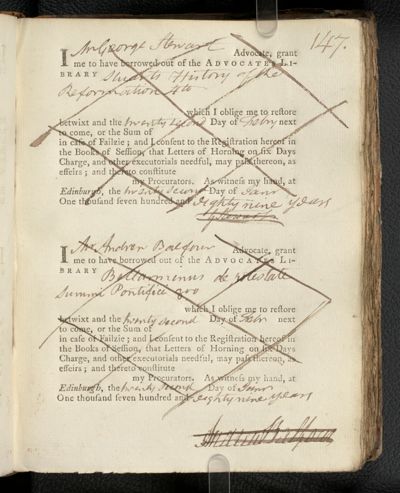 147.
I Mr George Steuart Advocate, grant
me to have borrowed out of the ADVOCATES LI-
BRARY Stuarts History of the
Reformation 4to
which I oblige me to restore
betwixt and the twenty second Day of Febry next
to come, or the Sum of
in case of Failzie; and I consent to the Registration hereof in
the Books of Session, that Letters of Horning on six Days
Charge, and other executorials needful, may pass thereon, as
effeirs; and thereto constitute
my Procurators. As witness my hand, at
Edinburgh, the twenty second Day of Janr
One thousand seven hundred and eighty nine years
I Mr Andrew Balfour Advocate, grant
me to have borrowed out of the ADVOCATES LI-
BRARY Bellarminus de potestate
Summi Pontificis 8vo
which I oblige me to restore
betwixt and the twenty second Day of Febr next
to come, or the Sum of
in case of Failzie; and I consent to the Registration hereof in
the Books of Session, that Letters of Horning on six Days
Charge, and other executorials needful, may pass thereon, as
effeirs; and thereto constitute
my Procurators. As witness my hand, at
Edinburgh, the twenty second Day of Janr
One thousand seven hundred and eighty nine years
Andrew Balfour